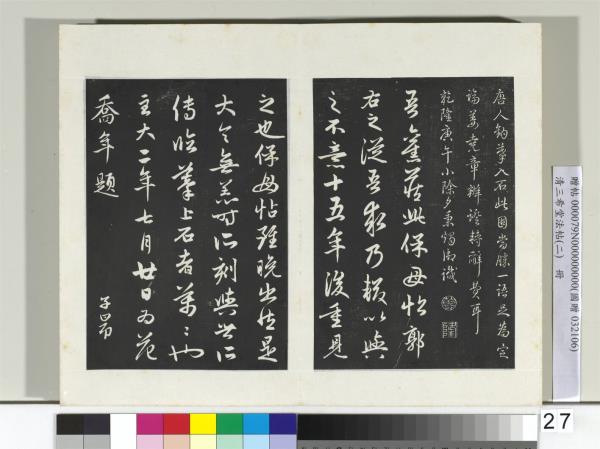 唐人鉤摹入石此固當勝一語足為定
論姜堯章辯證特辭費耳
乾隆庚午小除夕秉燭御識
吾舊藏此保母帖郭
右之從吾求乃輟以與
之不意十五年後重見
之也保母帖雖晚出然是
大令無恙時所刻與世所
傳臨摹上石者萬〻也
至大二年七月廿日為范
喬年題
子昂
贈帖 000079N000000000(國贈 032106)
清三希堂法帖(二) 冊
27